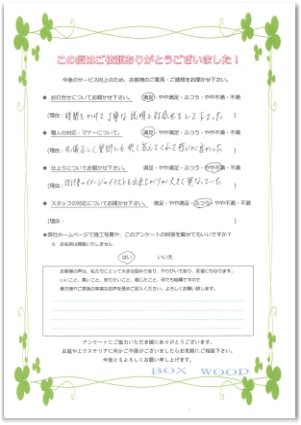 この度はご依頼ありがとうございました！
今後のサービス向上のため、お客様のご意見・ご感想をお聞かせ下さい。
◆ お打合せについてお聞かせ下さい。 満足・やや満足・ふつう・やや不満・不満
(理由：時間をかけて丁寧な説明と打合せをして下さった )
◆ 職人の対応・マナーについて。 満足・やや満足・ふつう・やや不満・不満
(理由：
◆ 仕上りについてお聞かせ下さい。 満足・やや満足・ふつう・やや不満・不満
(理由：
◆ スタッフの対応についてお聞かせ下さい。 満足・やや満足・ふつう・やや不満・不満
(理由： )
◆弊社ホームページで施工写真や、このアンケートの回答を載せてもいいですか？
※ お名前は掲載いたしません。
はい いいえ
お客様の声は、私たちにとって大きな励みであり、やりがいであり、反省にもなります。
いいこと、悪いこと、知りたいこと、感じたこと、何でも結構ですので
アンケートにご協力いただき誠にありがとうございます。
お庭やエクステリアに何かご不便がございましたらお気軽にご相談下さい。
今後ともよろしくお願い申し上げます。
BOX WOOD